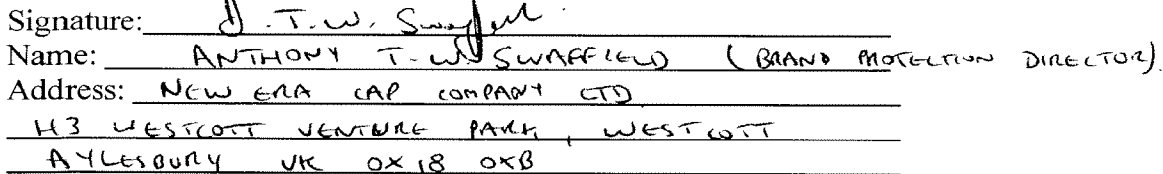 Signature: A. T. W. Swaffield
Name: ANTHONY T. W. SWAFFIELD (BRAND PROTECTION DIRECTOR).
Address: NEW ERA CAP COMPANY LTD
H3 WESTCOTT VENTURE PARK, WESTCOTT
AYLESBURY UK OX18 0XB